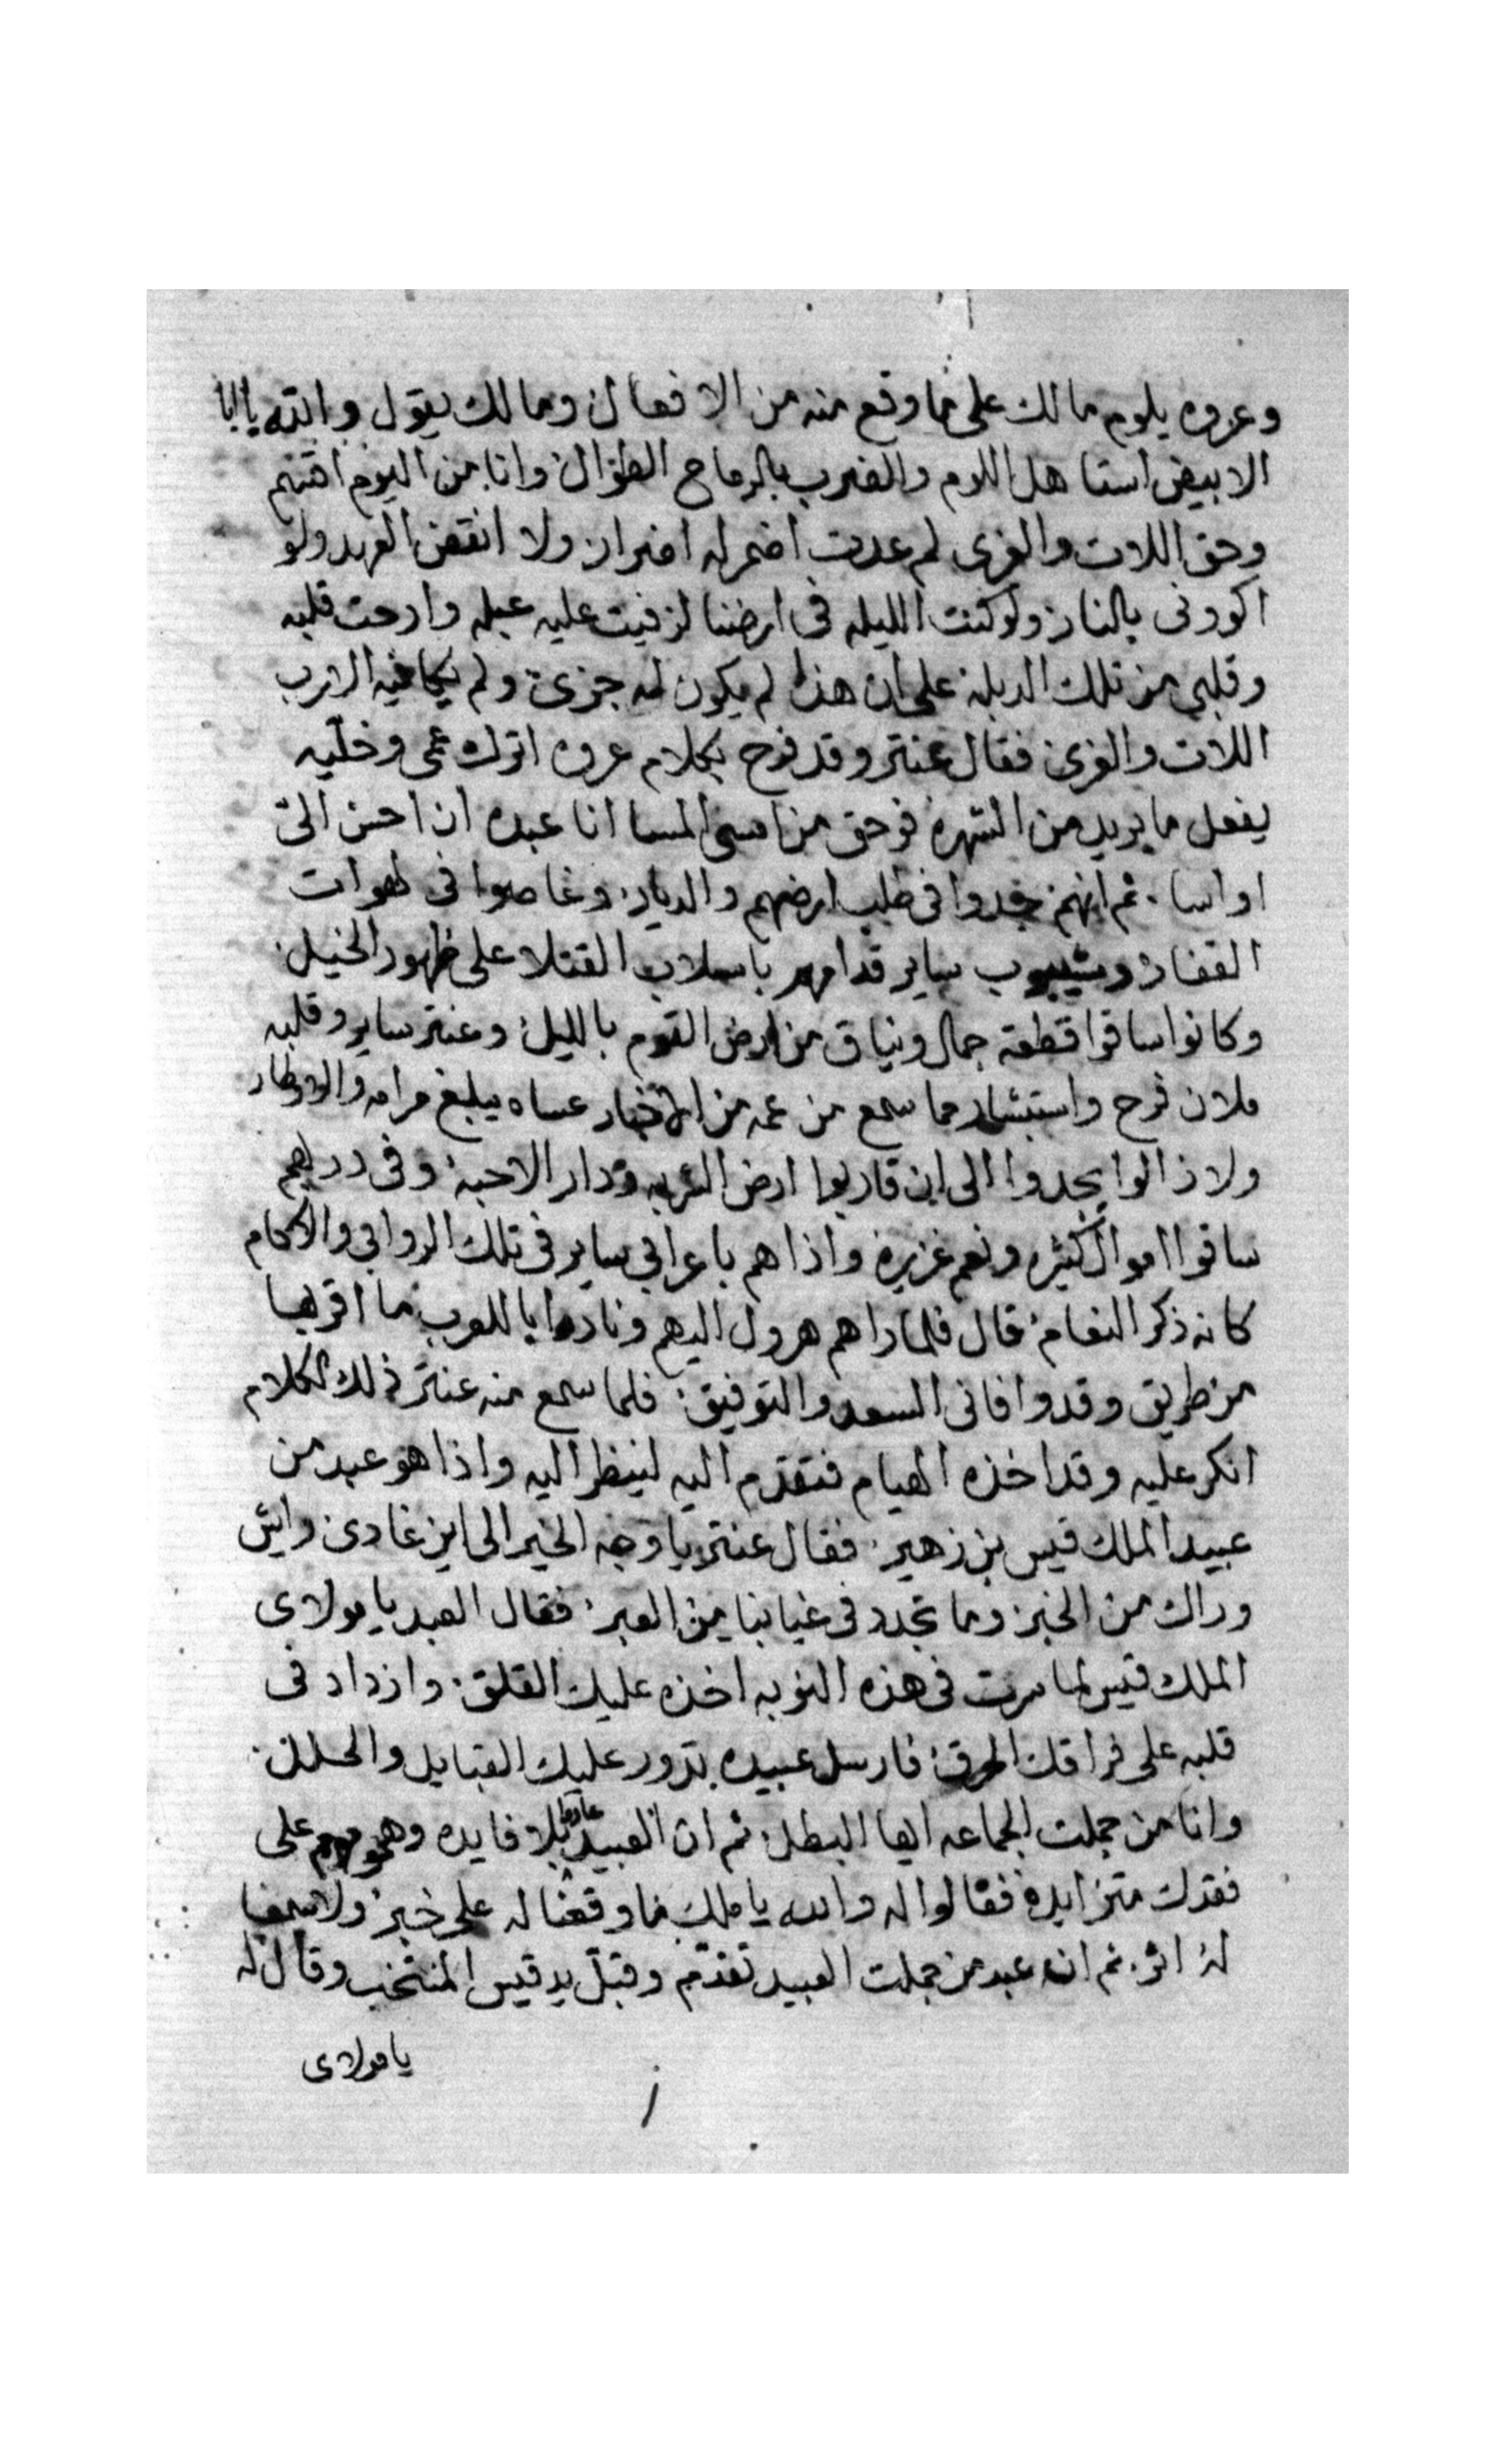 وعروه يلوم مالك على ما وقع منه من الافعال ومالك يقول والله يا ابا
الابيض استاهل اللوم والضرب بالرماح الطوال وانا من اليوم
وحق اللات والعزى لم عدت اضمر له اضرار ولا انقض العهد ولو
اكوونى بالنار ولو كنت الليله فى ارضنا لزفيت عليه عبله وارحت قلبه
وقلبي من تلك الدبله على ان هذا لم يكون له جزى ولم يكافيه الا رب
اللات والعزى فقال عنتر وقد فرح بكلام عروه اترك عمى وخليه
يفعل ما يريد من الشهره فوحق من امسى المسا انا عبده ان احسن الىّ
او اسا . ثم انهم جدوا فى طلب ارضهم والديار وغاصوا فى لهوات
القفار وشيبوب ساير قدامهم باسلاب القتلا على ظهور الخيل
وكانوا ساقوا قطعة جمال ونياق من ارض القوم بالليل وعنتر ساير وقلبه
ملان فرح واستبشار مما سمع من عمه من الاخبار عساه يبلغ مرامه والاوطار
ولا زالوا يجدوا الى ان قاربوا ارض الشربه ودار الاحبة وفى دربهم
ساقوا اموال كثيره ونعم غزيرة واذا هم باعرابي ساير فى تلك الروابي والاكام
كانه ذكر النعام قال فلما راهم هرول اليهم ونادا يا للعرب ما اقربها
من طريق وقد وافانى السعد والتوفيق فلما سمع منه عنتر ذلك الكلام
انكر عليه وقد اخذه الهيام فتقدم اليه لينظر اليه واذا هو عبد من
عبيد الملك قيس بن زهير فقال عنتر يا وجه الخير الى اين غادى وايش
وراك من الخبر وما تجدد فى غيابنا من العبر فقال العبد يا مولاى
الملك قيس لما سرت فى هذه النوبه اخذه عليك القلق وازداد فى
قلبه على فراقك الحرق فارسل عبيده تدور عليك القبايل والحلل
وانا من جملت الجماعه ايها البطل ثم ان العبيد عادوا بلا فايده وهمومهم على
فقدك متزايدة فقالوا له والله يا ملك ما وقعنا له على خبر ولا سمعنا
له اثر . ثم ان عبد من جملت العبيد تقدم وقبل يد قيس المنتخب وقال له
يا مولاى